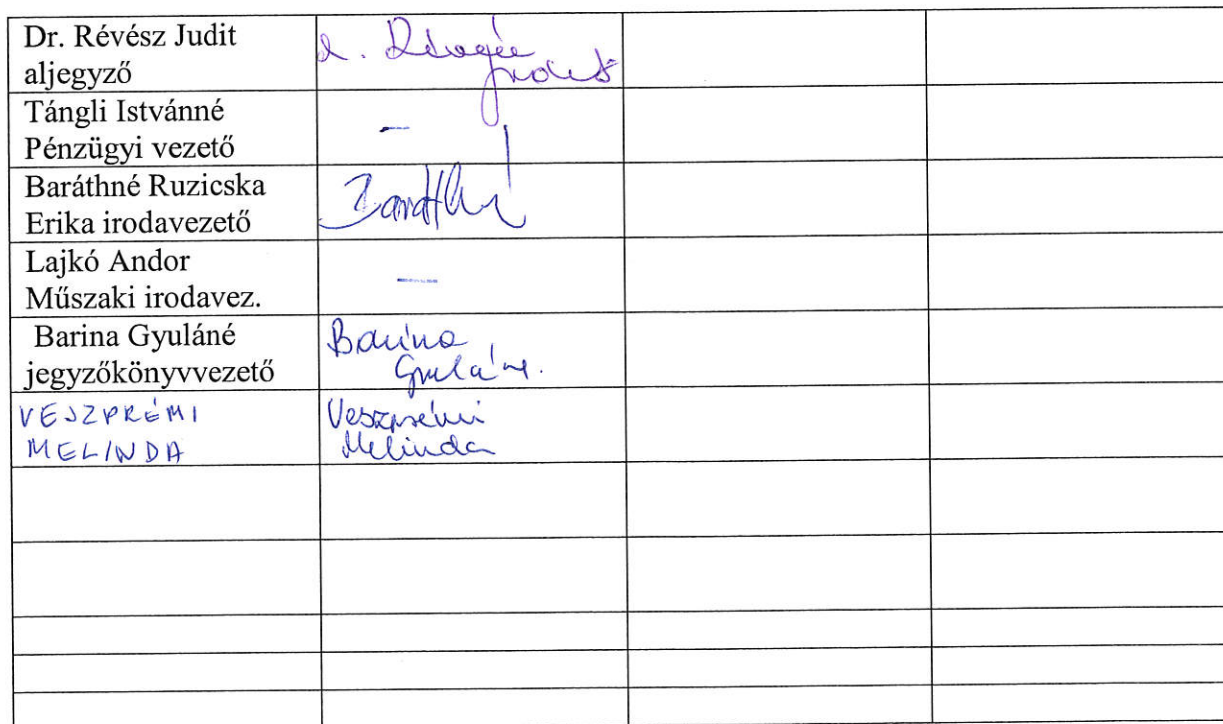 Dr. Révész Judit
aljegyző
d. Révész
Judit
Tángli Istvánné
Pénzügyi vezető
–
Baráthné Ruzicska
Erika irodavezető
Baráthné
Lajkó Andor
Műszaki irodavez.
–
Barina Gyuláné
jegyzőkönyvvezető
Barina
Gyuláné.
VESZPRÉMI
MELINDA
Veszprémi
Melinda